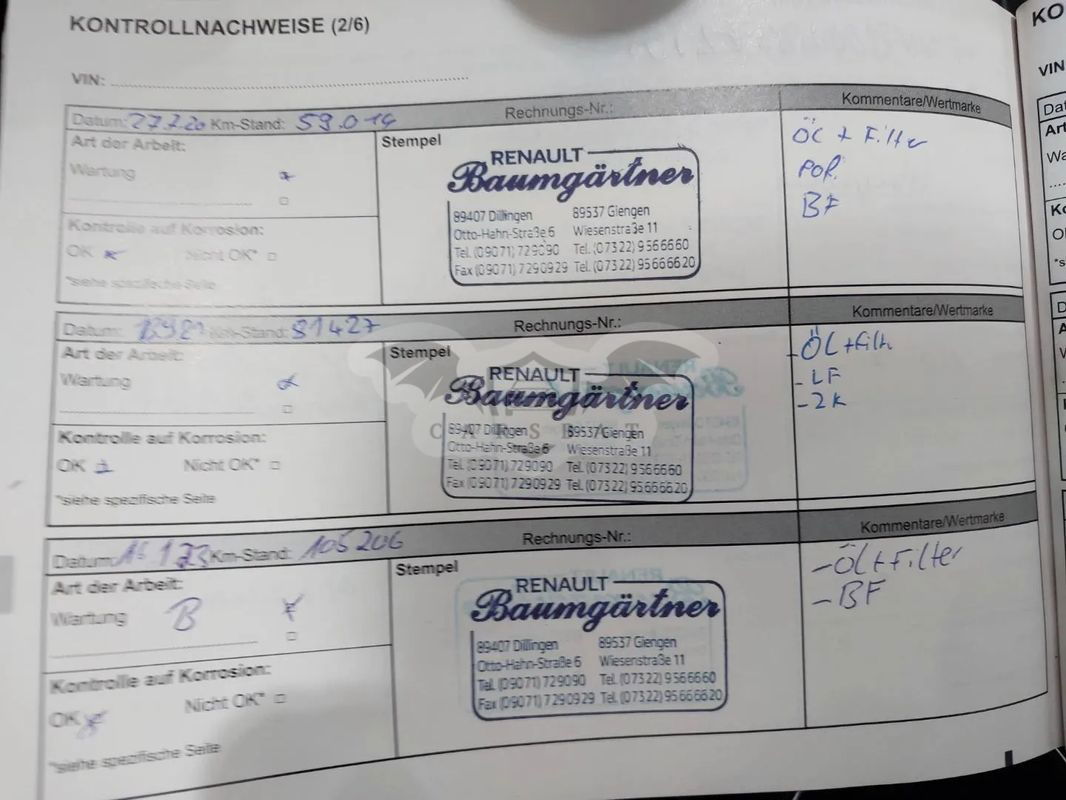 KONTROLLNACHWEISE (2/6)
VIN:
Datum: 27.7.20 Km-Stand: 59.014 Rechnungs-Nr.: Kommentare/Wertmarke
Art der Arbeit: Stempel ÖL + Filter
Wartung POR.
BF
Kontrolle auf Korrosion:
OK Nicht OK*
*siehe spezifische Seite
RENAULT
Baumgärtner
89407 Dillingen 89537 Giengen
Otto-Hahn-Straße 6 Wiesenstraße 11
Tel. (09071) 729090 Tel. (07322) 9566660
Fax (09071) 7290929 Tel. (07322) 95666620
Datum: Km-Stand: 81427 Rechnungs-Nr.: Kommentare/Wertmarke
Art der Arbeit: Stempel - ÖL + Filt
Wartung - LF
- ZK
Kontrolle auf Korrosion:
OK Nicht OK*
*siehe spezifische Seite
RENAULT
Baumgärtner
CARSBAT
89407 Dillingen 89537 Giengen
Otto-Hahn-Straße 6 Wiesenstraße 11
Tel. (09071) 729090 Tel. (07322) 9566660
Fax (09071) 7290929 Tel. (07322) 95666620
Datum: Km-Stand: 105206 Rechnungs-Nr.: Kommentare/Wertmarke
Art der Arbeit: Stempel - ÖL + Filter
Wartung B - BF
Kontrolle auf Korrosion:
OK Nicht OK*
*siehe spezifische Seite
RENAULT
Baumgärtner
89407 Dillingen 89537 Giengen
Otto-Hahn-Straße 6 Wiesenstraße 11
Tel. (09071) 729090 Tel. (07322) 9566660
Fax (09071) 7290929 Tel. (07322) 95666620
KO
VIN